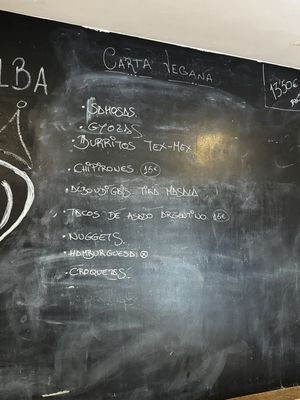 LBA
CARTA VEGANA
13,50€
· SAMOSAS
· GYOZAS
· BURRITOS TEX-MEX
· CHIPIRONES 15€
· ALBONDIGAS TIKA MASALA
· TACOS DE ASADO ARGENTINO 15€
· NUGGETS
· HAMBURGUESA
· CROQUETAS